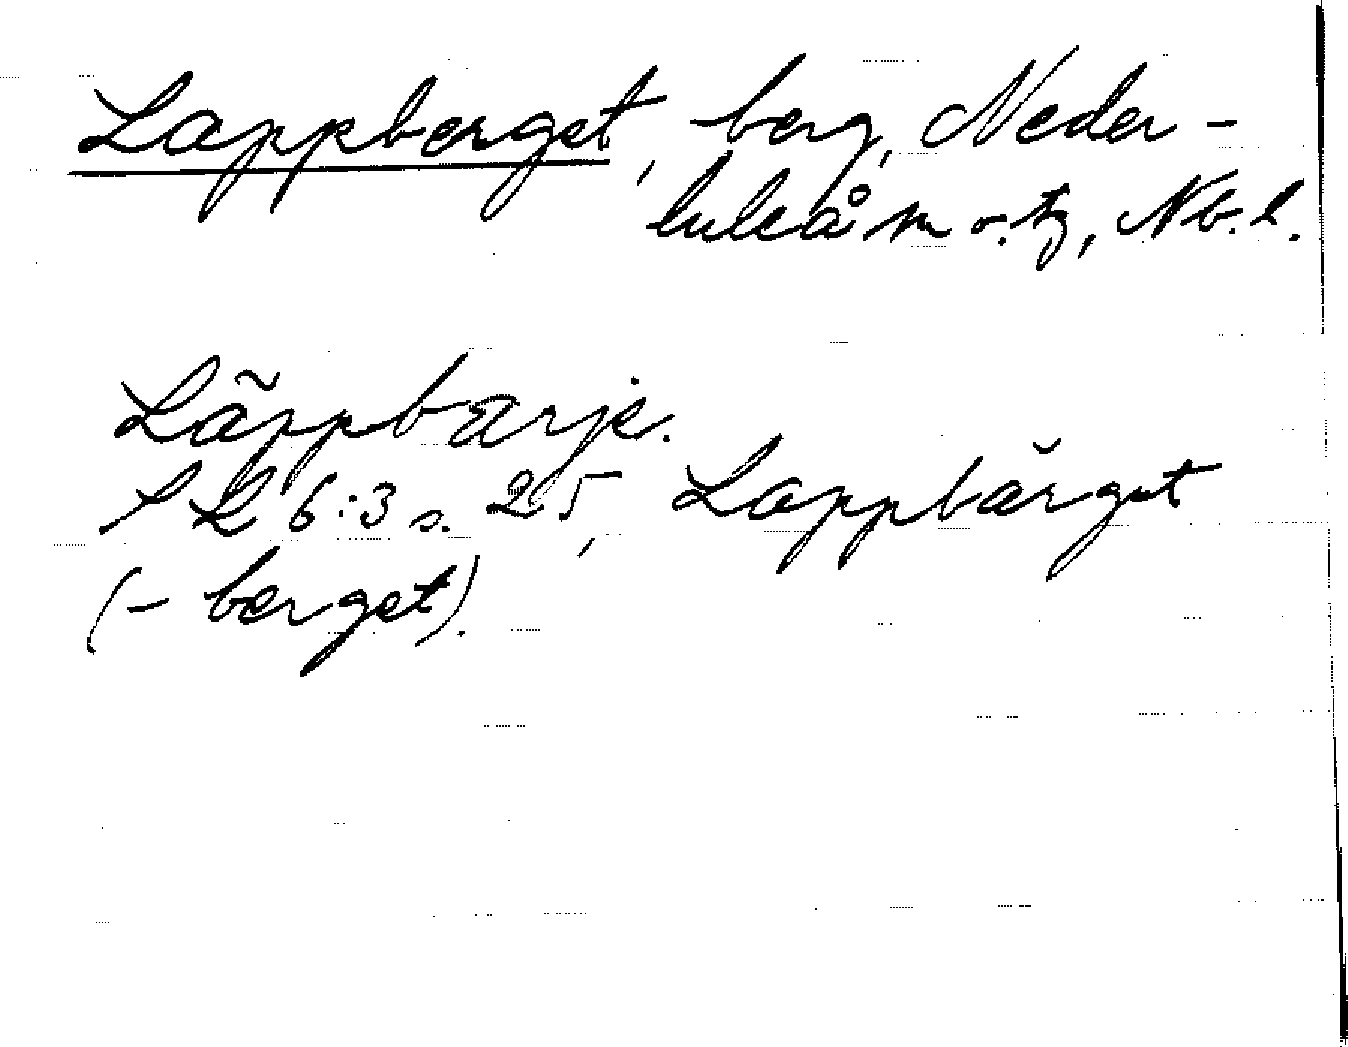 Lappberget, berg, Neder-
luleå sn o. tg, Nb. l.
Lãppbarje.
SL 6:3 s. 25, Lappbärget
(-berget).